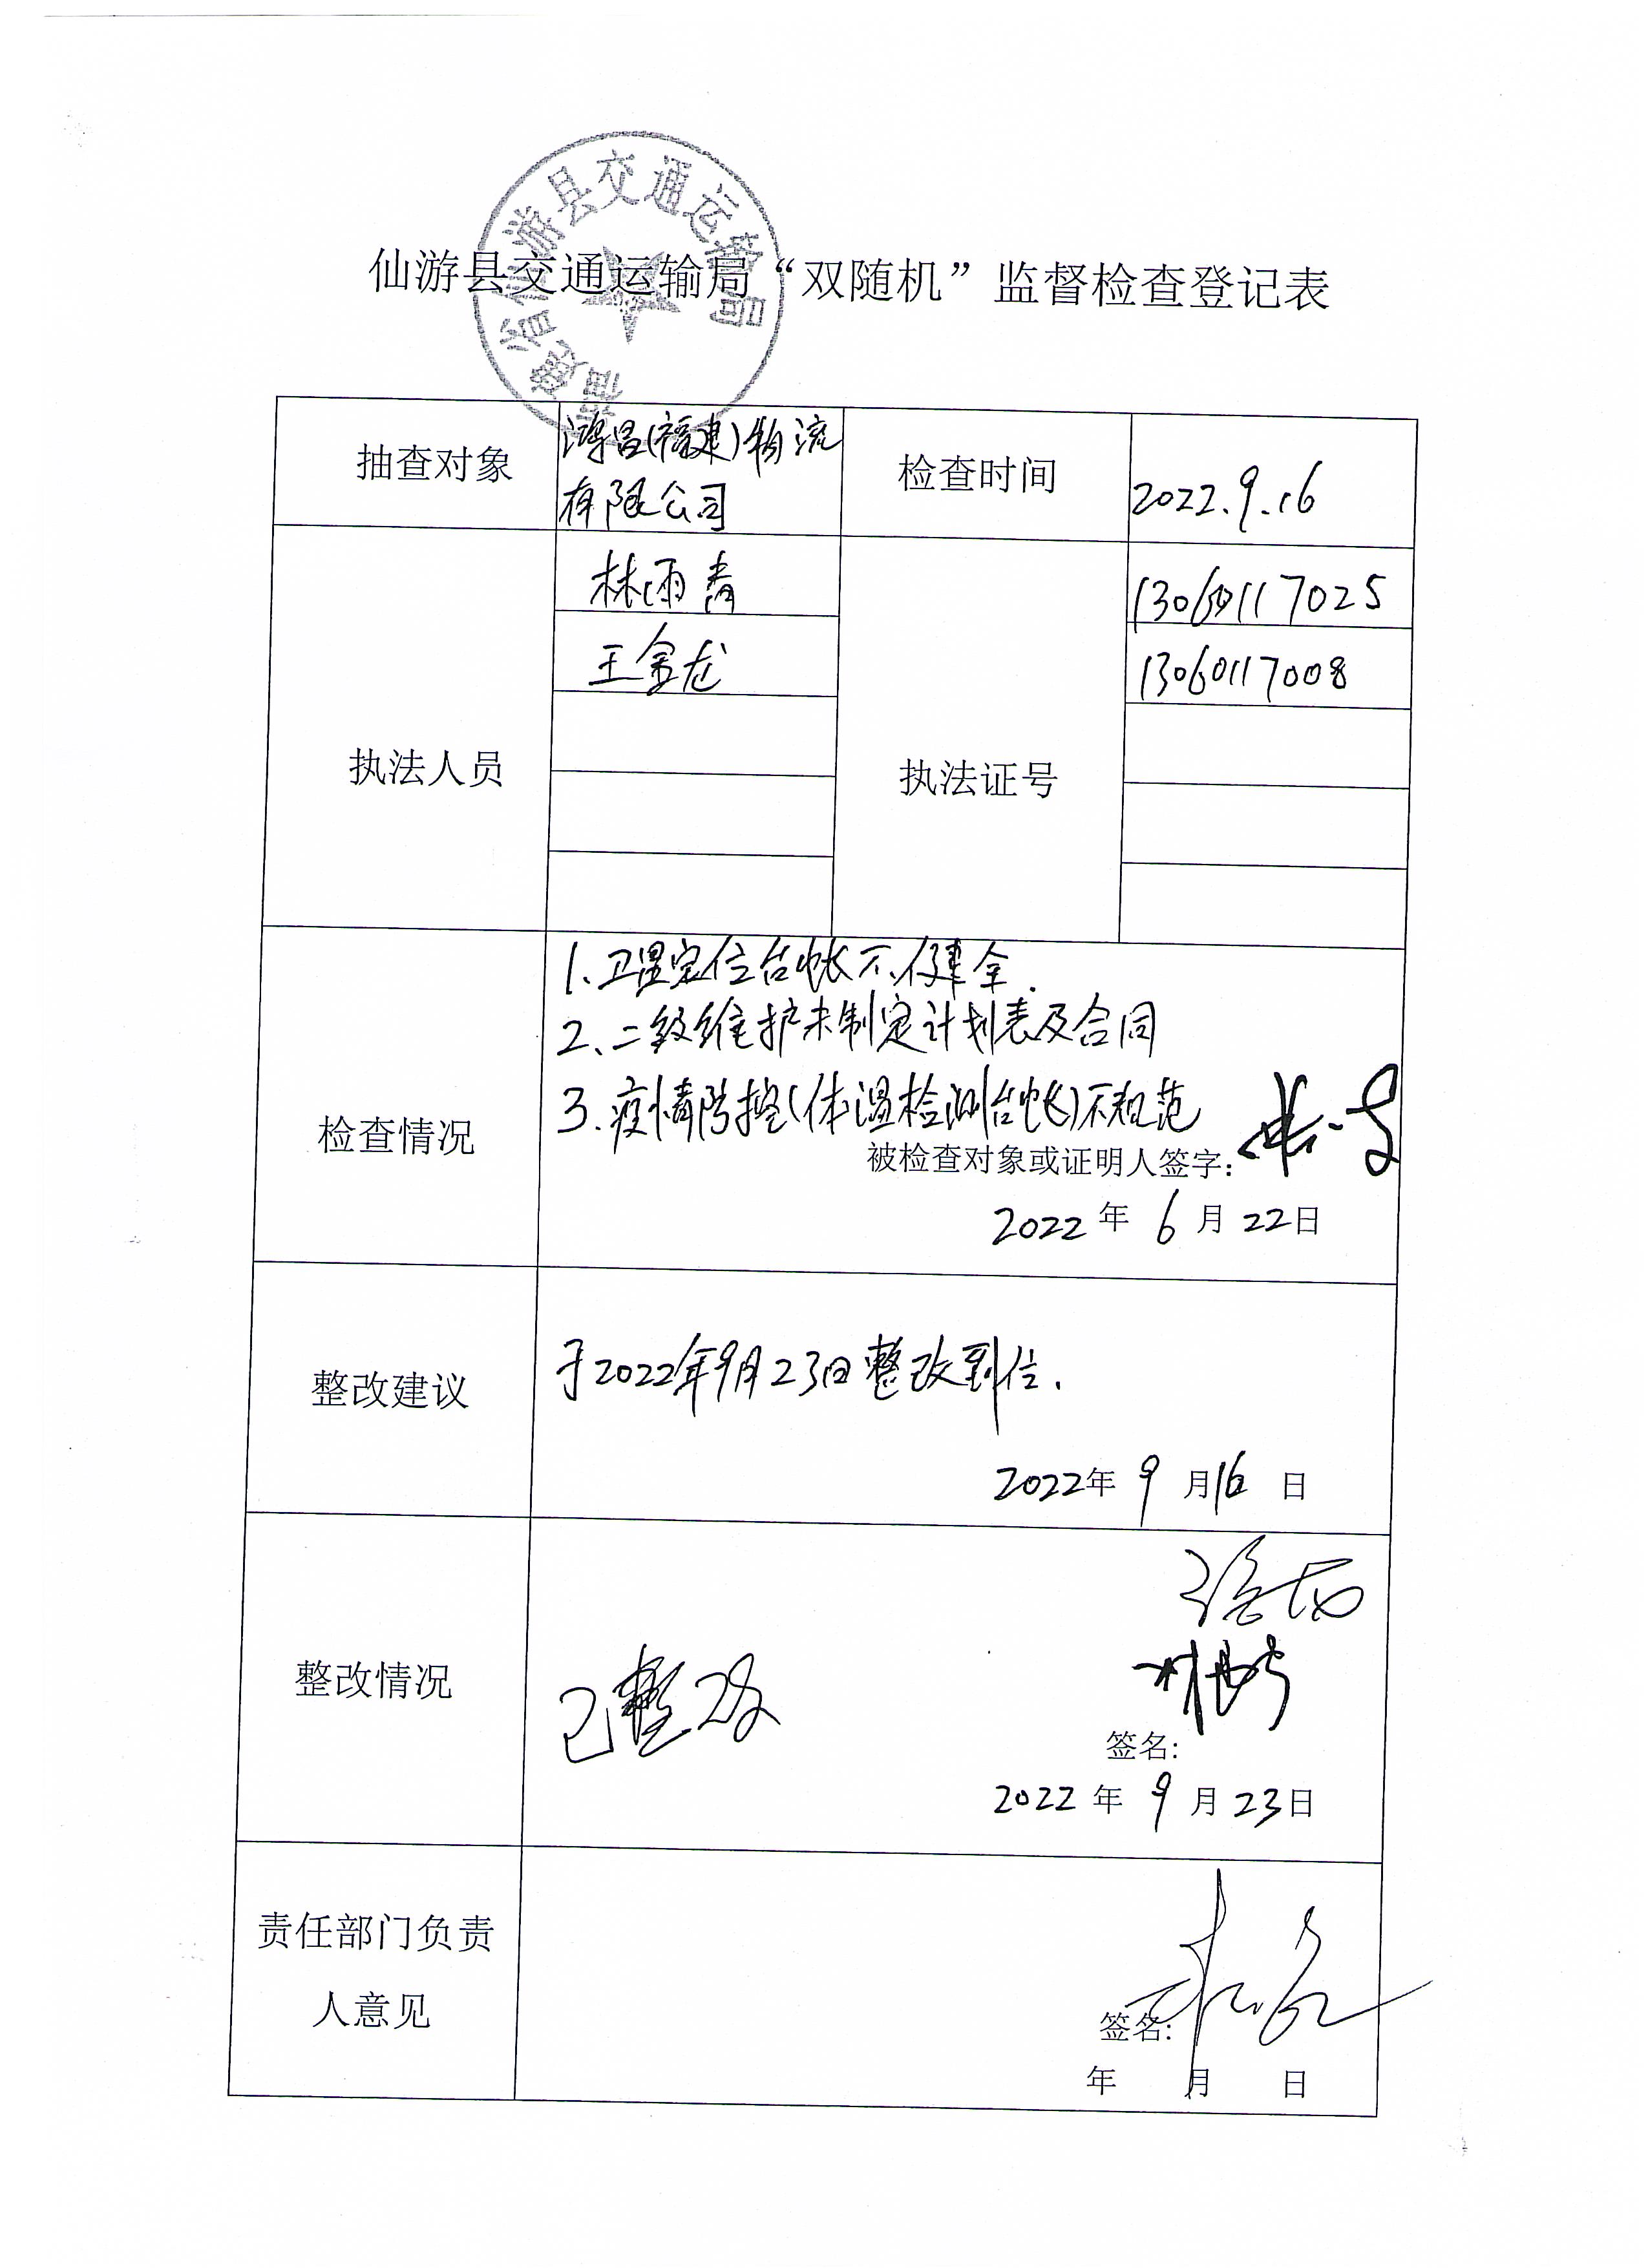 福建省仙游县交通运输局
仙游县交通运输局“双随机”监督检查登记表
抽查对象
鸿昌(福建)物流
有限公司
检查时间
2022.9.16
执法人员
林雨青
王金龙
执法证号
13060117025
13060117008
检查情况
1、卫星定位台帐不健全.
2、二级维护未制定计划表及合同
3.疫情防控(体温检测台帐)不规范
被检查对象或证明人签字:
2022年6月22日
整改建议
于2022年9月23日整改到位.
2022年9月16日
整改情况
已整改
签名:
2022年9月23日
责任部门负责
人意见
签名:
年 月 日